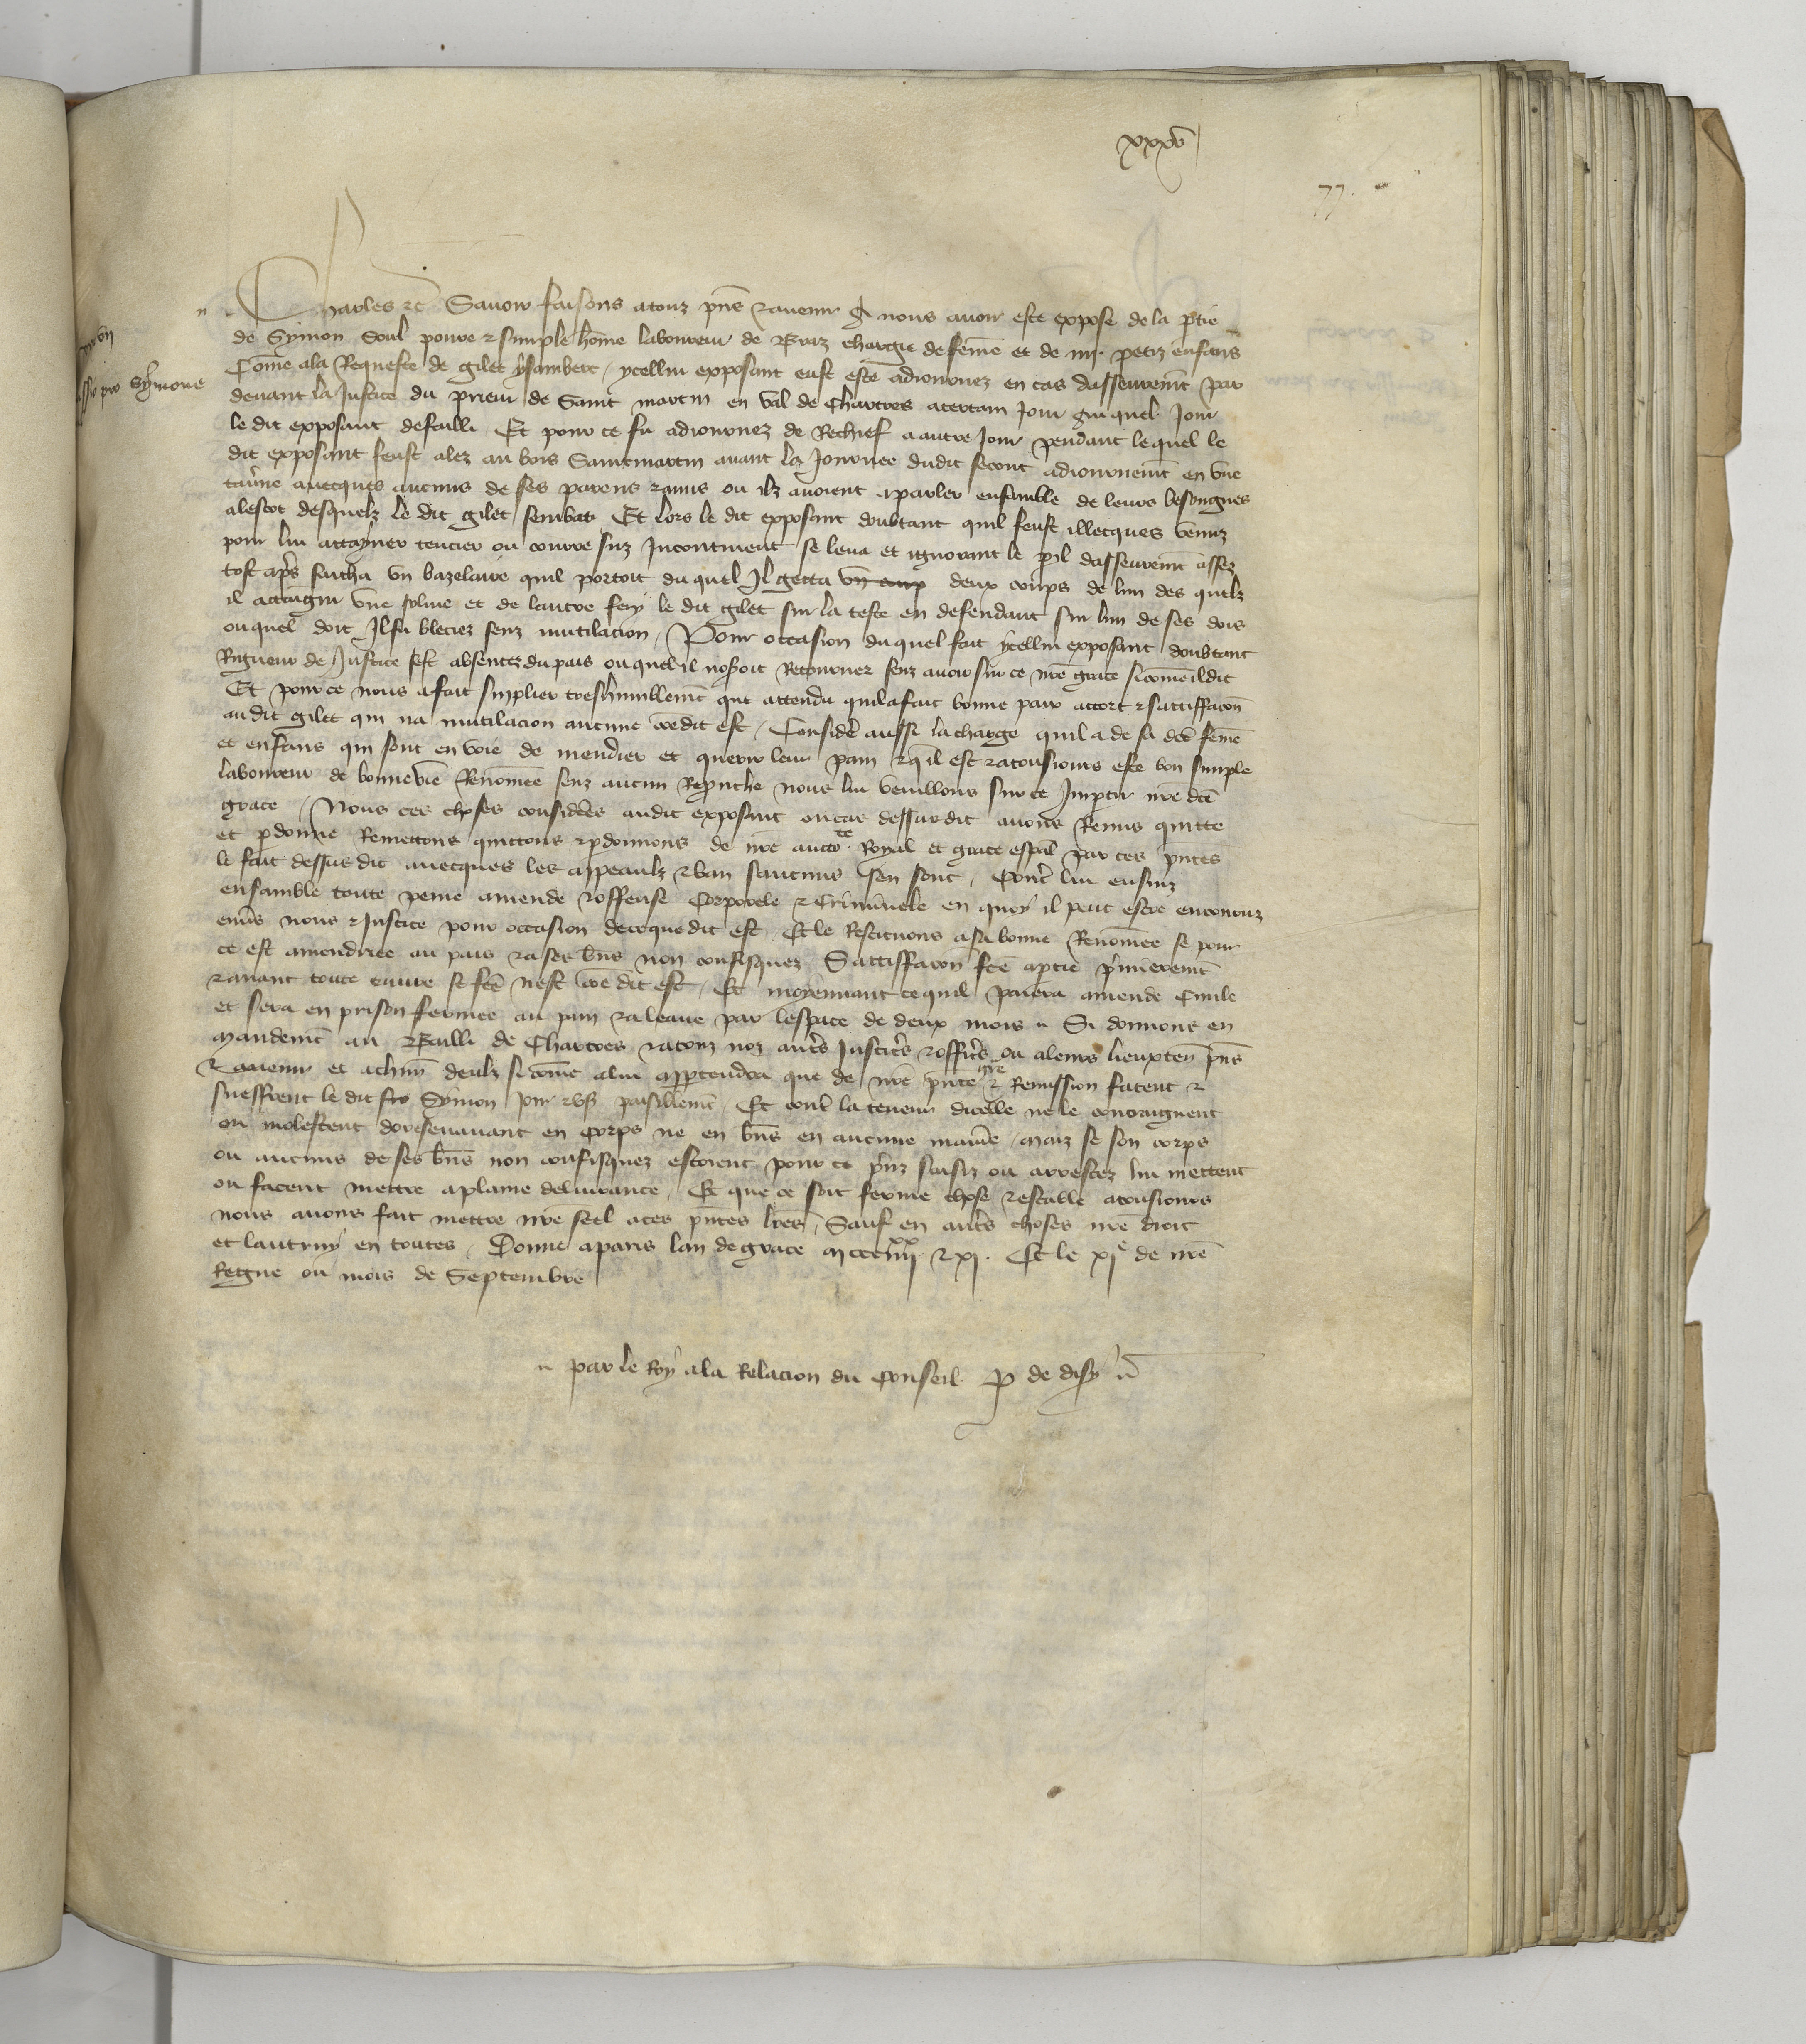 xxxv
77.
Charles etc Savoir faisons a touz pñs et avenir A nous avoir este expose de la ptie
de Symon Soul povre et simple hõme laboureur de Braz chargie de fẽme et de iiij. petiz enfans
Cõme ala Requeste de gilet ysambert / ycellui exposant eust este adiournez en cas dasseuremt par
pro Symone
devant la Justice du prieur de Saint martin en val de Chartres acertain Jour au quel Jour
le dit exposant defailli Et pour ce fu adiournez de Rechief a autre Jour pendant lequel le
dit exposant feust alez au bois Saintmartin avant la Journee dudit secont adiournemt en vne
tav̾ne avecques aucuns de ses parens et amis ou ilz avoient aparler ensamble de leurs besongnes
alescot desquelz le dit gilet sembati Et lors le dit exposant doubtant quil feust illecques venuz
pour lui attayner tencier ou courre suz Incontinent se leva et ignorant le pil dasseuremt assez
tost ap̾s sacha vn bazelaire quil portoit du quel Il getta vn coup deux coups de lun des quelz
il attaigni vne solive et de lautre feri le dit gilet sur la teste en defendant sur lun de ses dois
ouquel doit Il fu bleciez senz mutilacion / Pour occasion duquel fait ycellui exposant doubtant
Rigueur de Justice sest absentez du pais ouquel il nosoit Retourner senz avoir sur ce nr̃e grace si cõme il dit
Et pour ce nous a fait supplier treshumblemt que attendu quil a fait bonne paix accort et sattiffacõn
au dit gilet qui na mutilacion aucune cõe dit est / Considere aussi la charge quil a de sa dcẽ fẽme
et enfans qui sont en voie de mendier et querir leur pain et quil est et a tousiours este bon simple
laboureur de bonne vie Renõmee senz aucun Reprouche nous lui veuillons sur ce Impartir nr̃e dcẽ
grace / Nous ces choses considerees audit exposant ou cas dessusdit avons Remis quitte
et pdonne Remettons quittons et pdonnons de nr̃e aucto te Royal et grace espal par ces pñtes
le fait dessus dit avecques les appeaulx et ban saucuns sen sont / Contre lui ensuiz
ensamble toute peine amende et offense Corporele et Criminele en quoy il peut estre encouruz
env̾s nous et Justice pour occasion de ce que dit est / Et le Restituons a sa bonne Renõmee se pour
ce est amendriee au pais et a ses bñs non confisquez Sattiffacõn fcẽ a ptie p̾mieremt
et avant toute euvre se fcẽ nest cõe dit est / Et moyennant ce quil paiera amende Civile
et sera en prison fermee au pain et a leaue par lespace de deux mois Si donnons en
mandemt au Bailli de Chartres et a touz noz autr̾s Justic̾s et offic̾s ou a leurs lieuxteñ pñs
et avenir et a chũn deulx si cõme a lui appartendra que de nr̃e pñte gre et Remission facent et
sueffrent le dit fro Symon joir et user paisiblemt / Et contr̾ la teneur dicelle ne le contraignent
ou molestent doresenavant en corps ne en bñs en aucune manie̾ / maiz se son corps
ou aucuns de ses bñs non confisquez estoient pour ce pr̾nz saisiz ou arrestez lui mettent
ou facent mettre a plaine delivrance / Et que ce soit ferme chose et estable a tousiours
nous avons fait mettre nr̃e seel a ces pñtes lr̃es / Sauf en autr̾s choses nr̃e droit
et lautruy en toutes / Donne a paris lan de grace m ccc iiij xx et xi . Et le xi e de nr̃e
Regne ou mois de Septembre
par le Roy a la Relacion du Conseil. P de disy